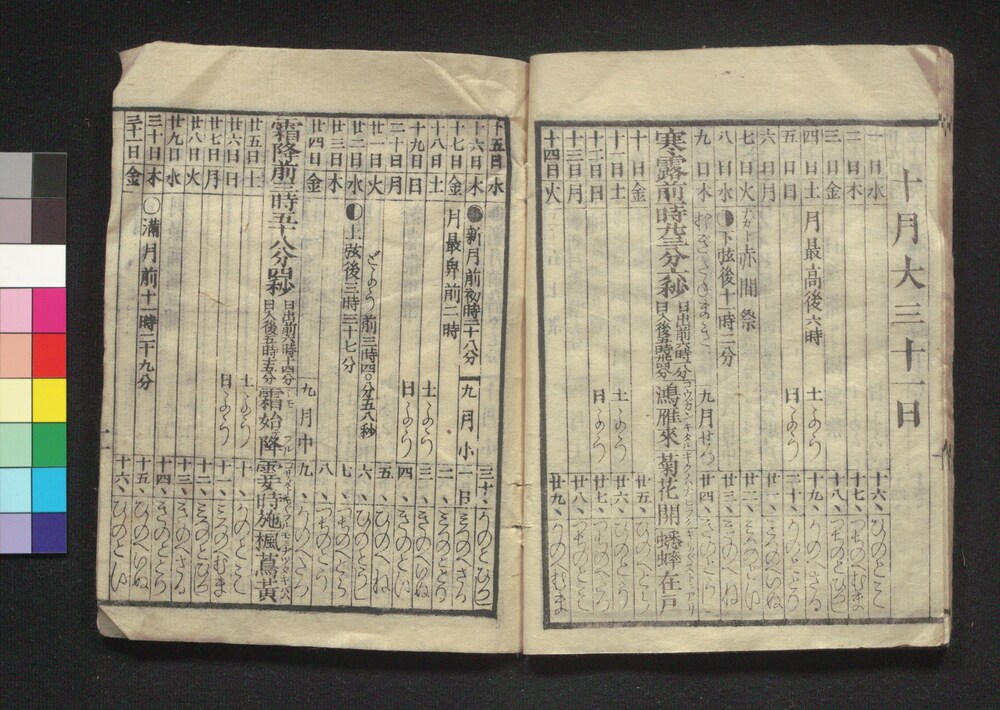 十月大三十一日
一日水 十六、ひのとミ
二日木 十七、つちのへむま
三日金 十八、つちのとひつじ
四日土 月最高後六時 土ようよう 十九、かのへさる
五日日 日ようよう 二十、かのととり
六日月 廿一、ミつのへいぬ
七日火 赤間祭 廿二、ミつのとい
八日水 ◗下弦後十一時二分 廿三、きのへね
九日木 九月せつ 廿四、きのとうし
寒露前一時
日出前六時
日入後五時
鴻雁來 菊花開 蟋蟀在戸
コウガンキタル
十日金 廿五、ひのへとら
十一日土 土よう 廿六、ひのとう
十二日日 日よう 廿七、つちのへたつ
十三日月 廿八、つちのとミ
十四日火 廿九、かのへむま
十五日水 三十、かのとひつじ
十六日木 ●新月前初時二十八分 九月小 一日 ミつのへさる
十七日金 月最卑前二時 二、ミつのととり
十八日土 土よう 三、きのへいぬ
十九日日 日よう 四、きのとい
二十日月 五、ひのへね
廿一日火 どよう 前三時四〇分五八秒 六、ひのとうし
廿二日水 ◐上弦後三時三十七分 七、つちのへとら
廿三日木 八、つちのとう
廿四日金 九月中 九、かのへたつ
霜降前三時五十八分四秒
日出前六時十四分
日入後五時
霜始降 霎時施 楓蔦黄
廿五日土 土よう 十、かのとミ
廿六日日 日よう 十一、ミつのへむま
廿七日月 十二、ミつのとひつじ
廿八日火 十三、きのへさる
廿九日水 十四、きのととり
三十日木 ○満月前十一時二十九分 十五、ひのへいぬ
三十一日金 十六、ひのとい